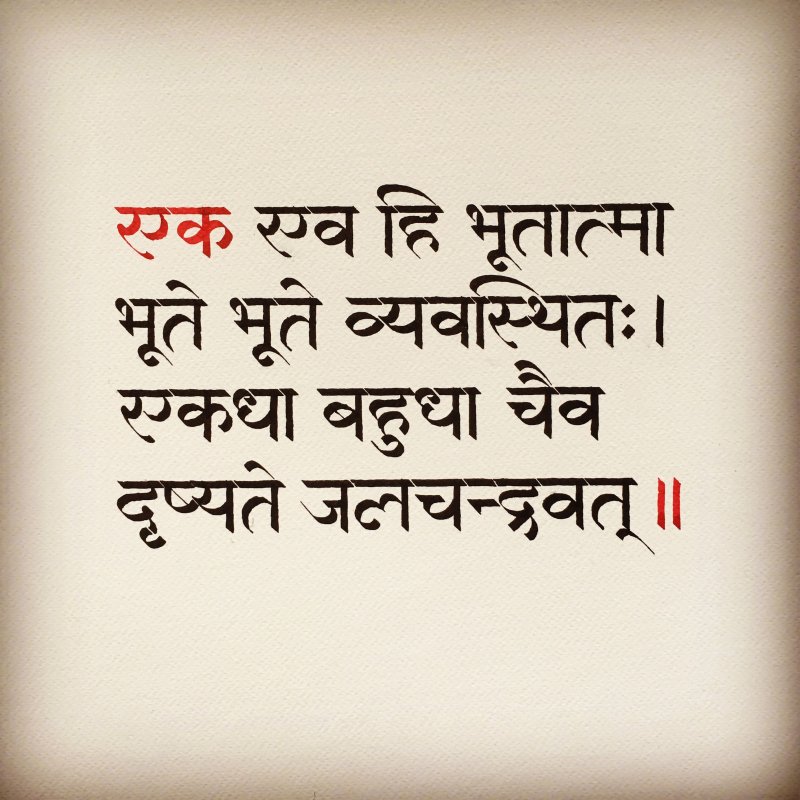 एक एव हि भूतात्मा
भूते भूते व्यवस्थितः।
एकधा बहुधा चैव
दृष्यते जलचन्द्रवत्॥